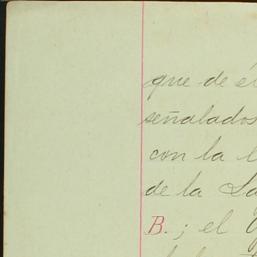 que de é
señalados
con la l
de la La
B.; el